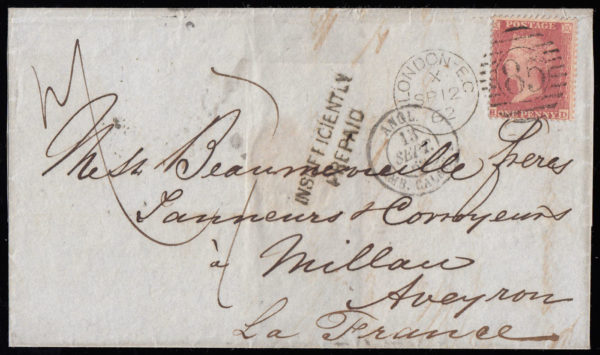 POSTAGE
ONE PENNY
85
LONDON-EC
X
SP 12
62
ANGL.
13
SEPT.
AMB. CALAIS
INSUFFICIENTLY
PREPAID
Messrs Beaumevieille frères
Tanneurs & Corroyeurs
à Millau
Aveyron
La France